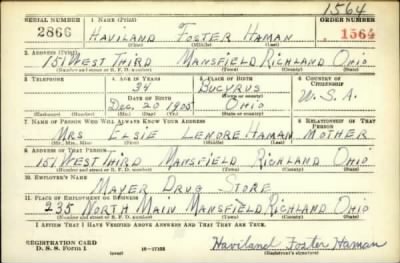 1564
SERIAL NUMBER 1. NAME (Print) ORDER NUMBER
2866 HAVILAND FOSTER HAMAN 1564
(First) (Middle) (Last)
2. ADDRESS (Print)
151 WEST THIRD MANSFIELD RICHLAND OHIO
(Number and street or R. F. D. number) (Town) (County) (State)
3. TELEPHONE 4. AGE IN YEARS 5. PLACE OF BIRTH 6. COUNTRY OF CITIZENSHIP
34 BUCYRUS
(Town or county)
DATE OF BIRTH
DEC. 20 1905 OHIO U.S.A.
(Mo.) (Day) (Yr.) (State or country)
7. NAME OF PERSON WHO WILL ALWAYS KNOW YOUR ADDRESS 8. RELATIONSHIP OF THAT PERSON
MRS ELSIE LENORE HAMAN MOTHER
(Mr., Mrs., Miss) (First) (Middle) (Last)
9. ADDRESS OF THAT PERSON
151 WEST THIRD MANSFIELD RICHLAND OHIO
(Number and street or R. F. D. number) (Town) (County) (State)
10. EMPLOYER'S NAME
MAYER DRUG STORE
11. PLACE OF EMPLOYMENT OR BUSINESS
235 NORTH MAIN MANSFIELD, RICHLAND OHIO
(Number and street or R. F. D. number) (Town) (County) (State)
I AFFIRM THAT I HAVE VERIFIED ABOVE ANSWERS AND THAT THEY ARE TRUE.
REGISTRATION CARD
D. S. S. Form 1 (over) 16—17105 Haviland Foster Haman
(Registrant's signature)